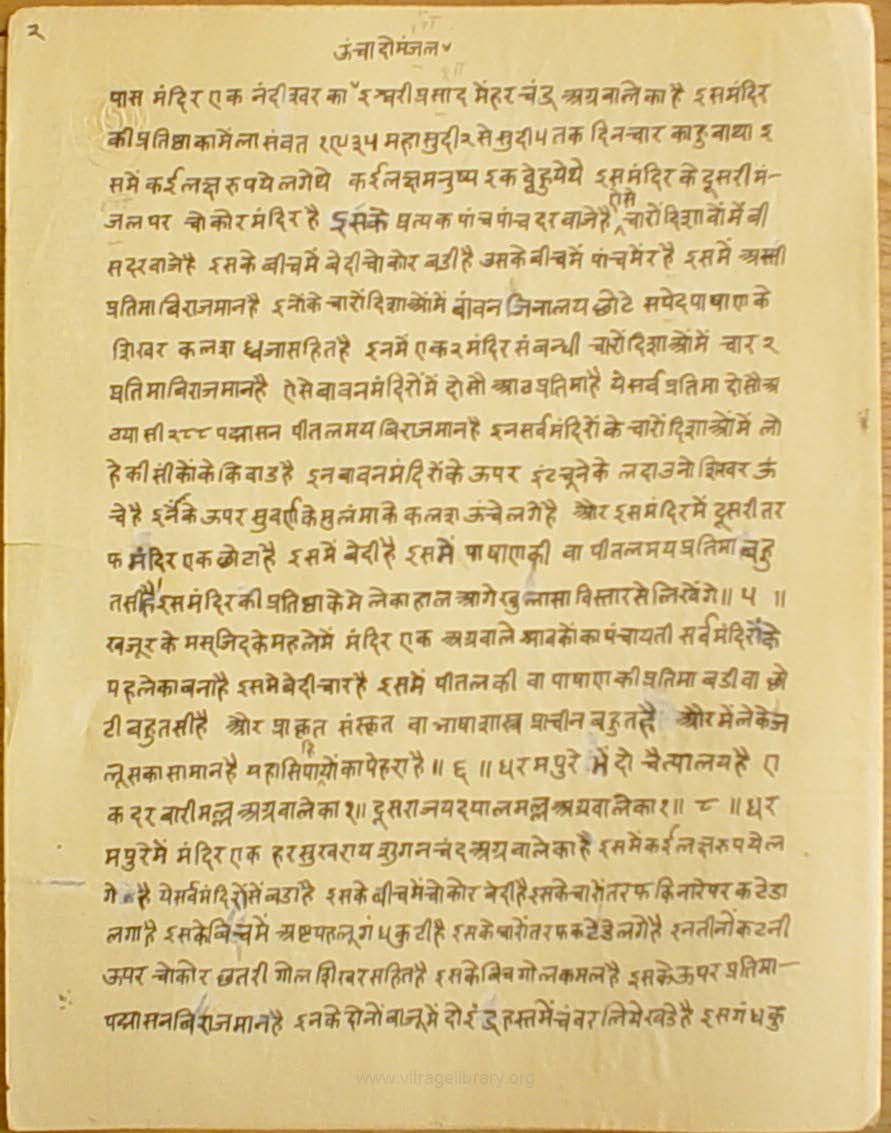 २
ऊंचा दो मंजल
पास मंदिर एक नंदीश्वर का ईश्वरी प्रसाद मेंहर चंद्र अग्रवाले का है इस मंदिर
की प्रतिष्ठा का मेंला संवत १९३५ महा सुदी २ से सुदी ५ तक दिन चार का हुवाथा इ
समें कई लक्ष रुपये लगेथे कई लक्ष मनुष्य इकठ्ठे हुयेथे इस मंदिर के दूसरी मं-
जल पर चोकोर मंदिर है इसके प्रत्यक पांच पांच दरवाजे है ऐसे चारों दिशावों में बी
स दरवाजे है इसके बीच में बेदी चोकोर बडी है उसके बीच में पांच मेर है इसमें अस्सी
प्रतिमा बिराजमान है इनोंके चारों दिशाओंमें बावन जिनालय छोटे सपेद पाषाण के
शिखर कलश ध्वजा सहित है इनमें एक २ मंदिर संबन्धी चारों दिशाओंमें चार २
प्रतिमा बिराजमान है ऐसे बावन मंदिरोंमें दो सौ आठ प्रतिमा है ये सर्व प्रतिमा दो सौ अ
ठ्यासी २८८ पद्मासन पीतलमय बिराजमान है इन सर्व मंदिरों के चारों दिशाओंमें लो
हे की सीकों के किवाड है इन बावन मंदिरों के ऊपर इंट चूने के लदाउ नो शिखर ऊं
चे है इनके ऊपर सुवर्ण के मुलंमा के कलश ऊंचे लगे है और इस मंदिर में दूसरी तर
फ मंदिर एक छोटा है इसमें बेदी है इसमें पाषाण की वा पीतलमय प्रतिमा बहु
तसी है इस मंदिर की प्रतिष्ठा के मेले का हाल आगे खुलासा विस्तार से लिखेंगे॥ ५ ॥
खजूर के मस्जिद के महले में मंदिर एक अग्रवाले श्रावकों का पंचायती सर्व मंदिरों के
पहले का बना है इसमे बेदी चार है इसमें पीतल की वा पाषाण की प्रतिमा बडी वा छो
टी बहुतसी है और प्राकृत संस्कृत वा भाषा शास्त्र प्राचीन बहुत है और मेंले के ज
लूस का सामान है महा सिपाहियों का पेहरा है ॥ ६ ॥ धरमपुरे में दो चैत्यालय है ए
क दरबारीमल्ल अग्रवाले का १॥ दूसरा जयदपालमल्ल अग्रवाले का १॥ ८ ॥ धर
मपुरे में मंदिर एक हरसुखराय शुगनचंद अग्रवाले का है इसमें कई लक्ष रुपये ल
गे है ये सर्व मंदिरों सें बडा है इसके बीच में चोकोर बेदी है इसके चारों तरफ किनारे पर कटेडा
लगा है इसके बिच में अष्ट पहलू गंधकुटी है इसके चारों तरफ कटेडे लगे है इन तीनों कटनी
ऊपर चोकोर छतरी गोल शिखर सहित है इसके बिच गोल कमल है इसके ऊपर प्रतिमा-
पद्मासन बिराजमान है इनके दोनों बाजू में दो इंद्र हस्त में चंवर लिये खडे है इस गंधकु
www.vitragelibrary.org